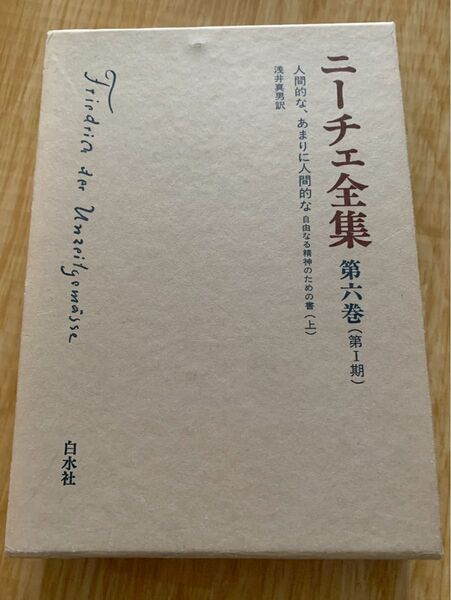 ニーチェ全集 第六巻(第Ⅰ期)
人間的な、あまりに人間的な 自由なる精神のための書(上)
浅井真男訳
Friedrich der Unzeitgemässe
白水社